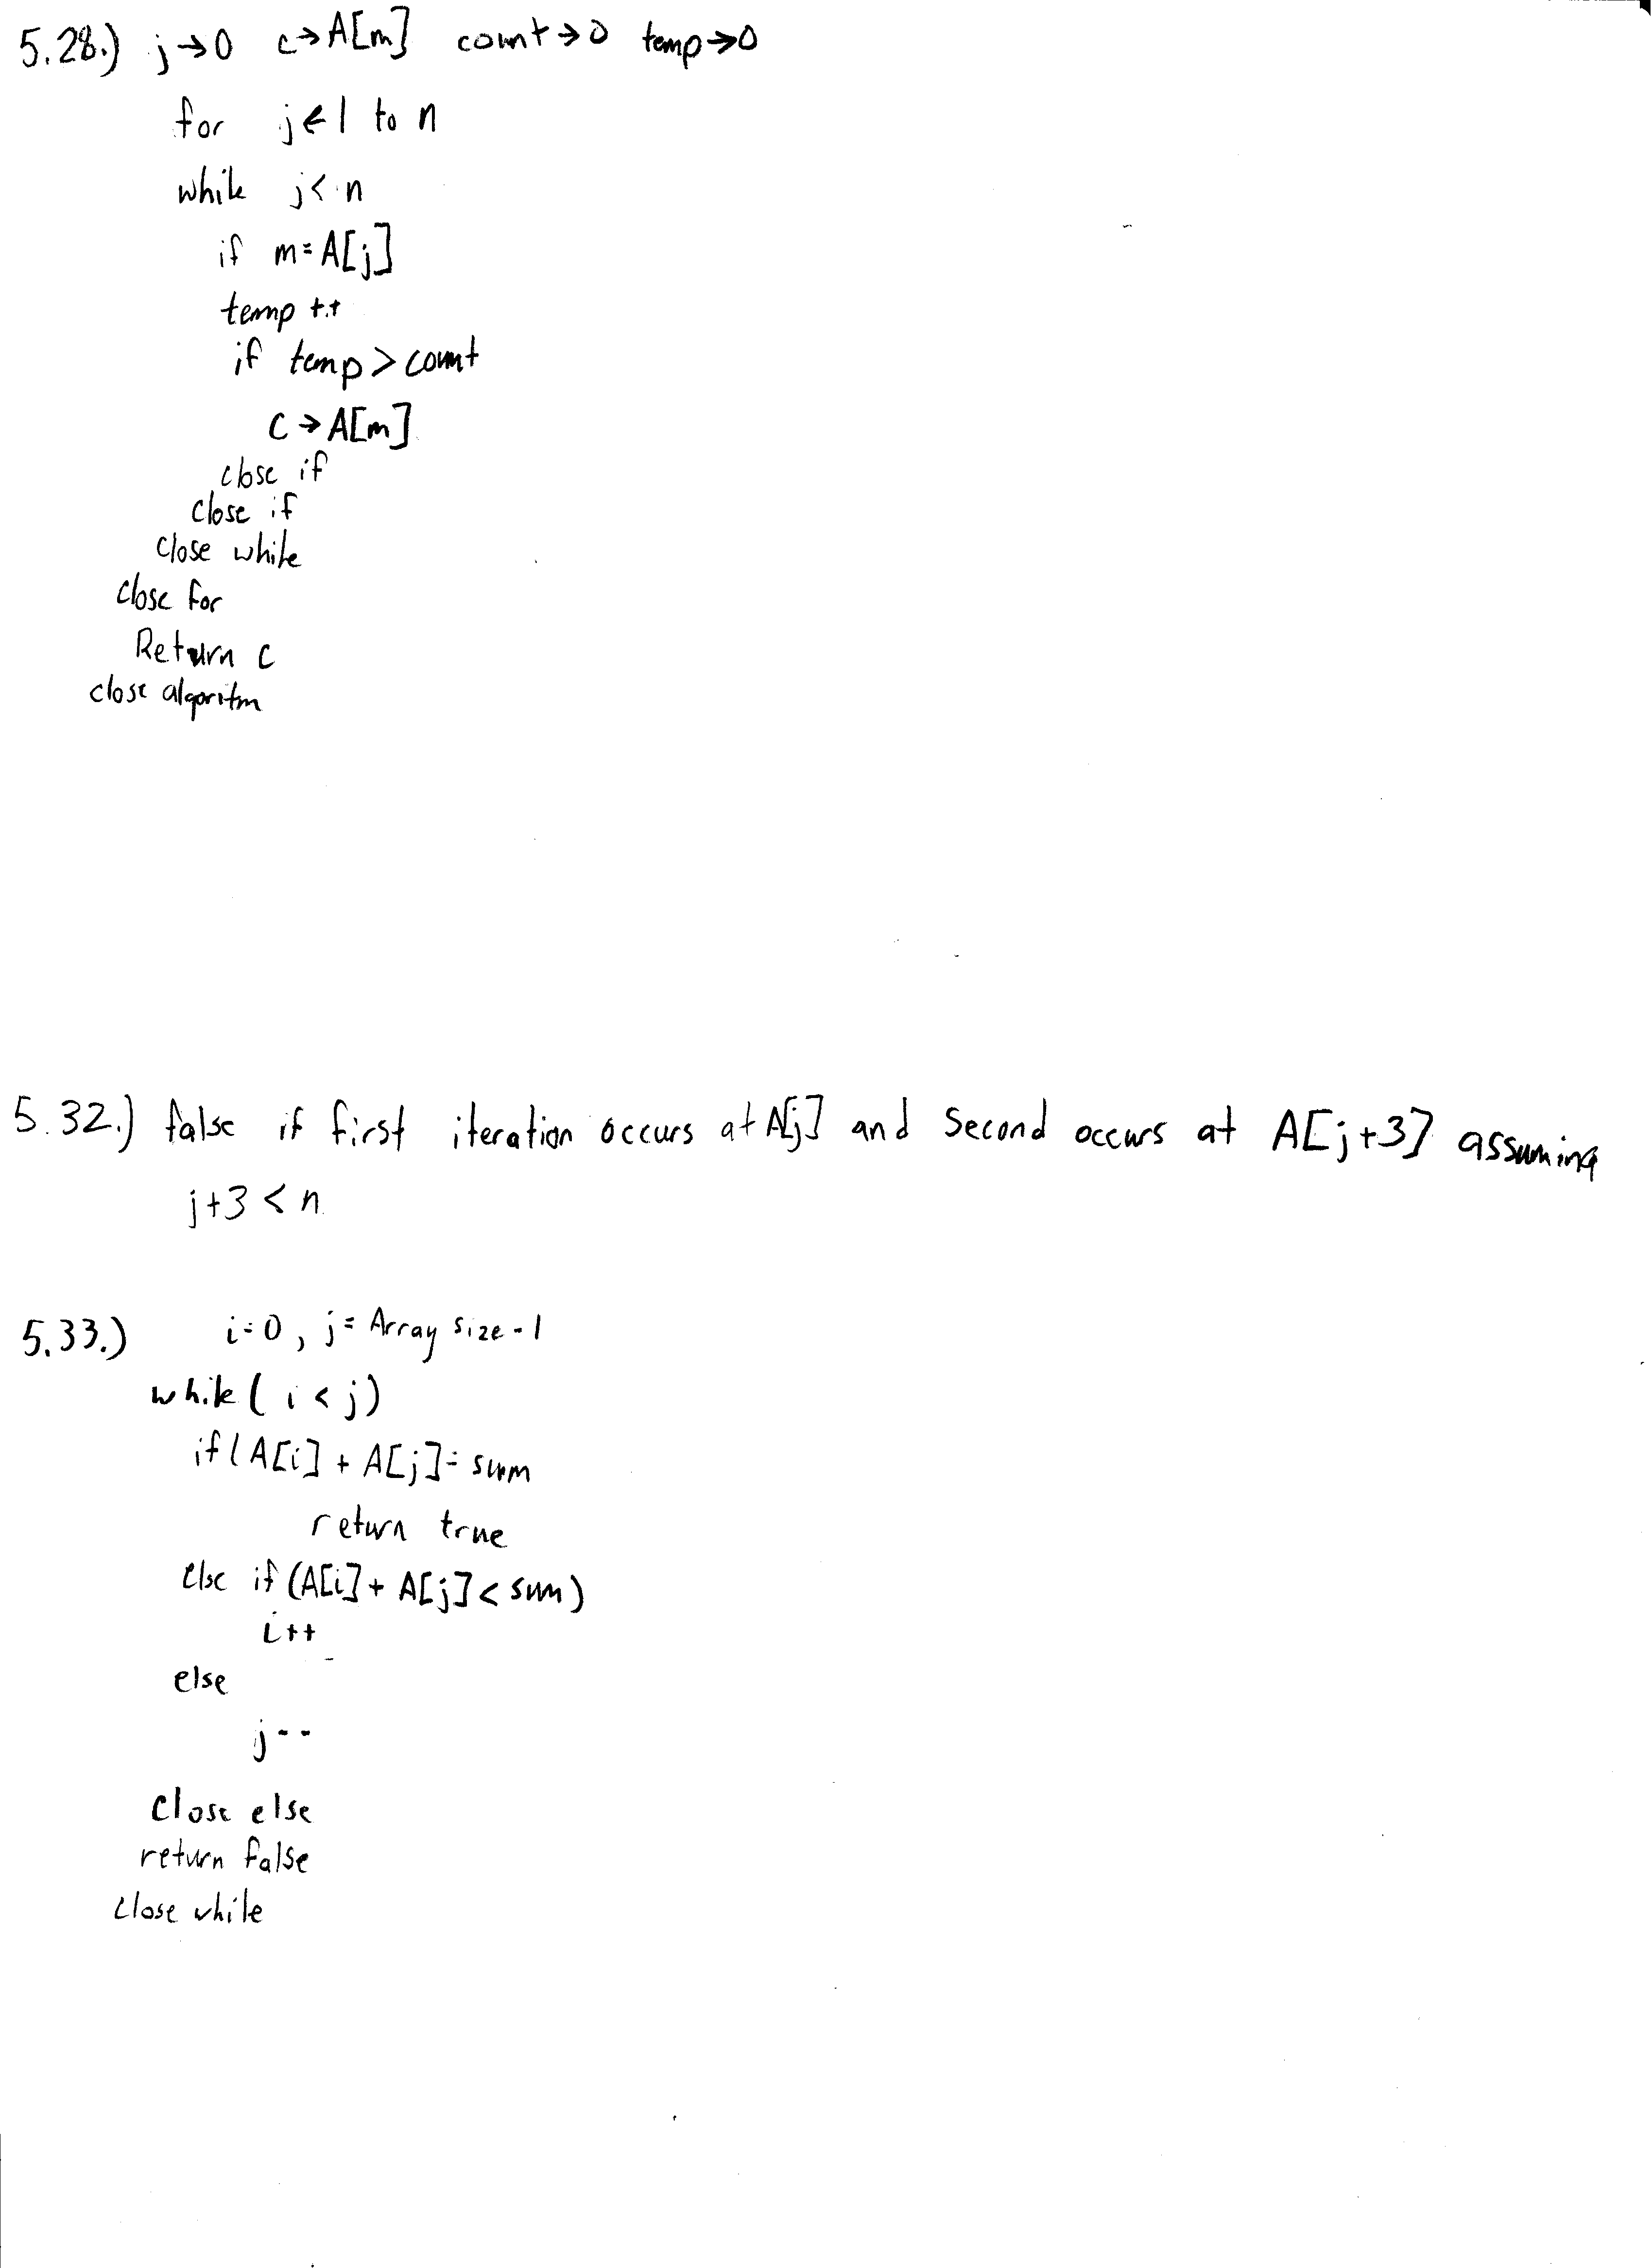 5.28.) j→0 c→A[m] count→0 temp→0
for j←1 to n
while j<n
if m=A[j]
temp++
if temp>count
C→A[m]
close if
close if
close while
close for
Return c
close algoritm
5.32.) false if first iteration occurs at A[j] and second occurs at A[j+3] assuming
j+3<n
5.33.) i=0, j=Array size-1
while(i<j)
if(A[i]+A[j]=sum
return true
else if(A[i]+A[j]<sum)
i++
else
j--
close else
return false
close while